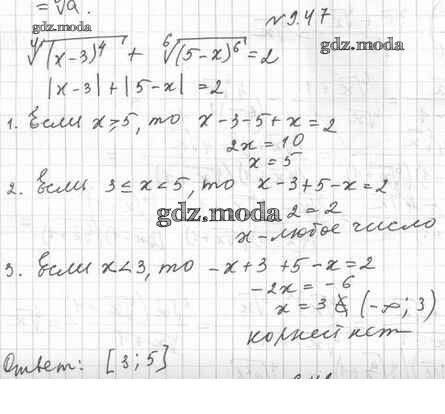 = ⁿ√a.
№ 9.47
gdz.moda
gdz.moda
⁴√(x-3)⁴ + ⁶√(5-x)⁶ = 2
|x-3| + |5-x| = 2
1. Если x ≥ 5, то x-3-5+x=2
2x=10
x=5
2. Если 3 ≤ x < 5, то x-3+5-x=2
gdz.moda
2=2
x - любое число
3. Если x<3, то -x+3+5-x=2
-2x = -6
x = 3 ∉ (-∞; 3)
корней нет
Ответ: [3; 5]